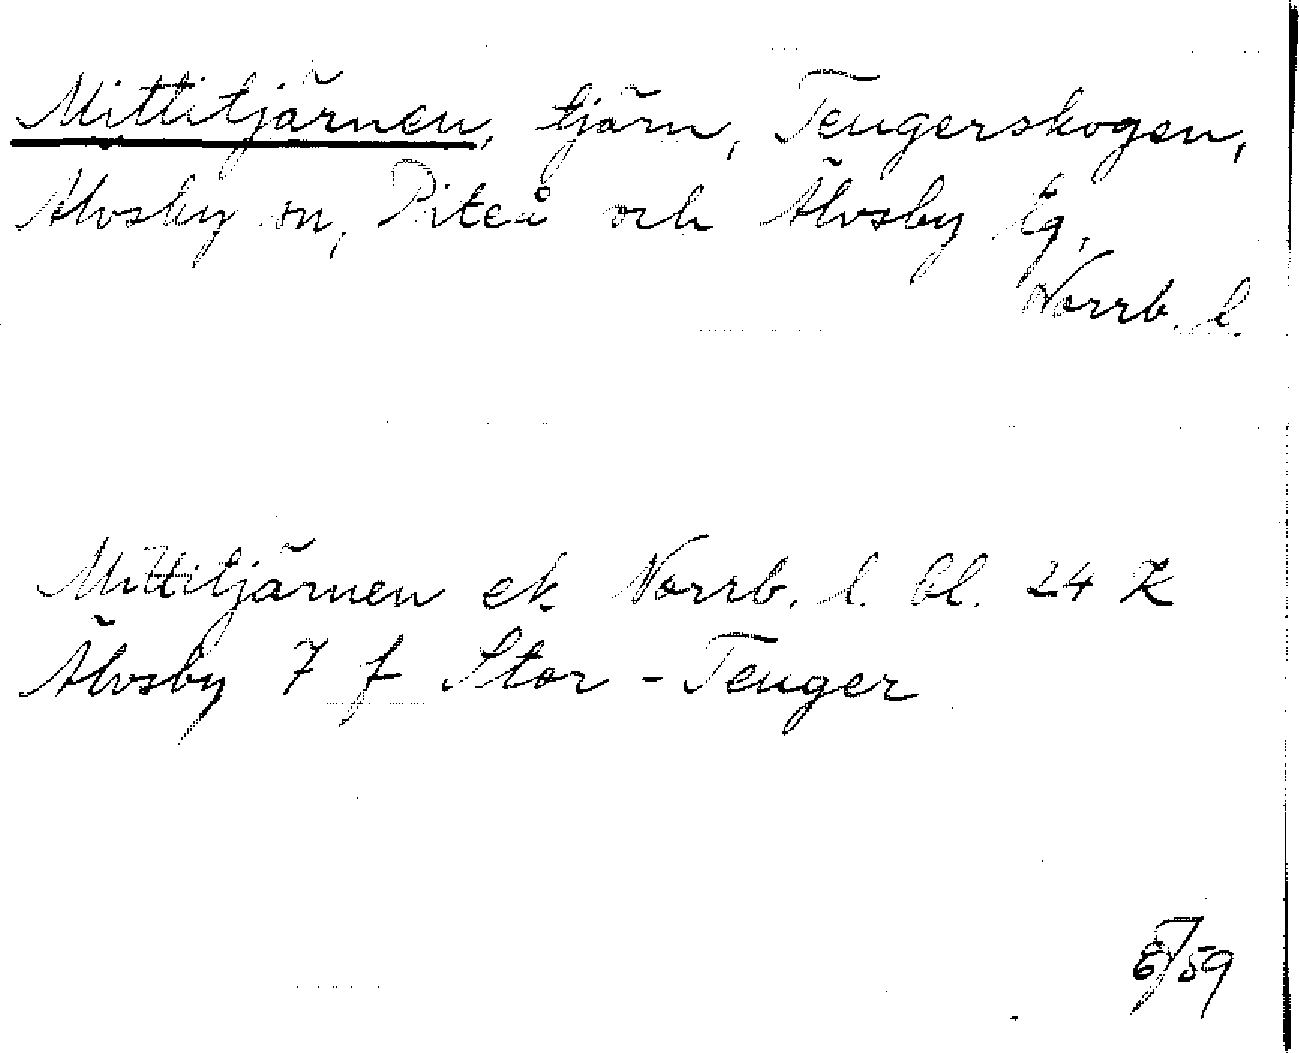 Mittitjärnen, tjärn, Teugerskogen,
Älvsby sn, Piteå och Älvsby tg,
Norrb. l.
Mittitjärnen ek Norrb. l. bl. 24 K
Älvsby 7 f Stor-Teuger